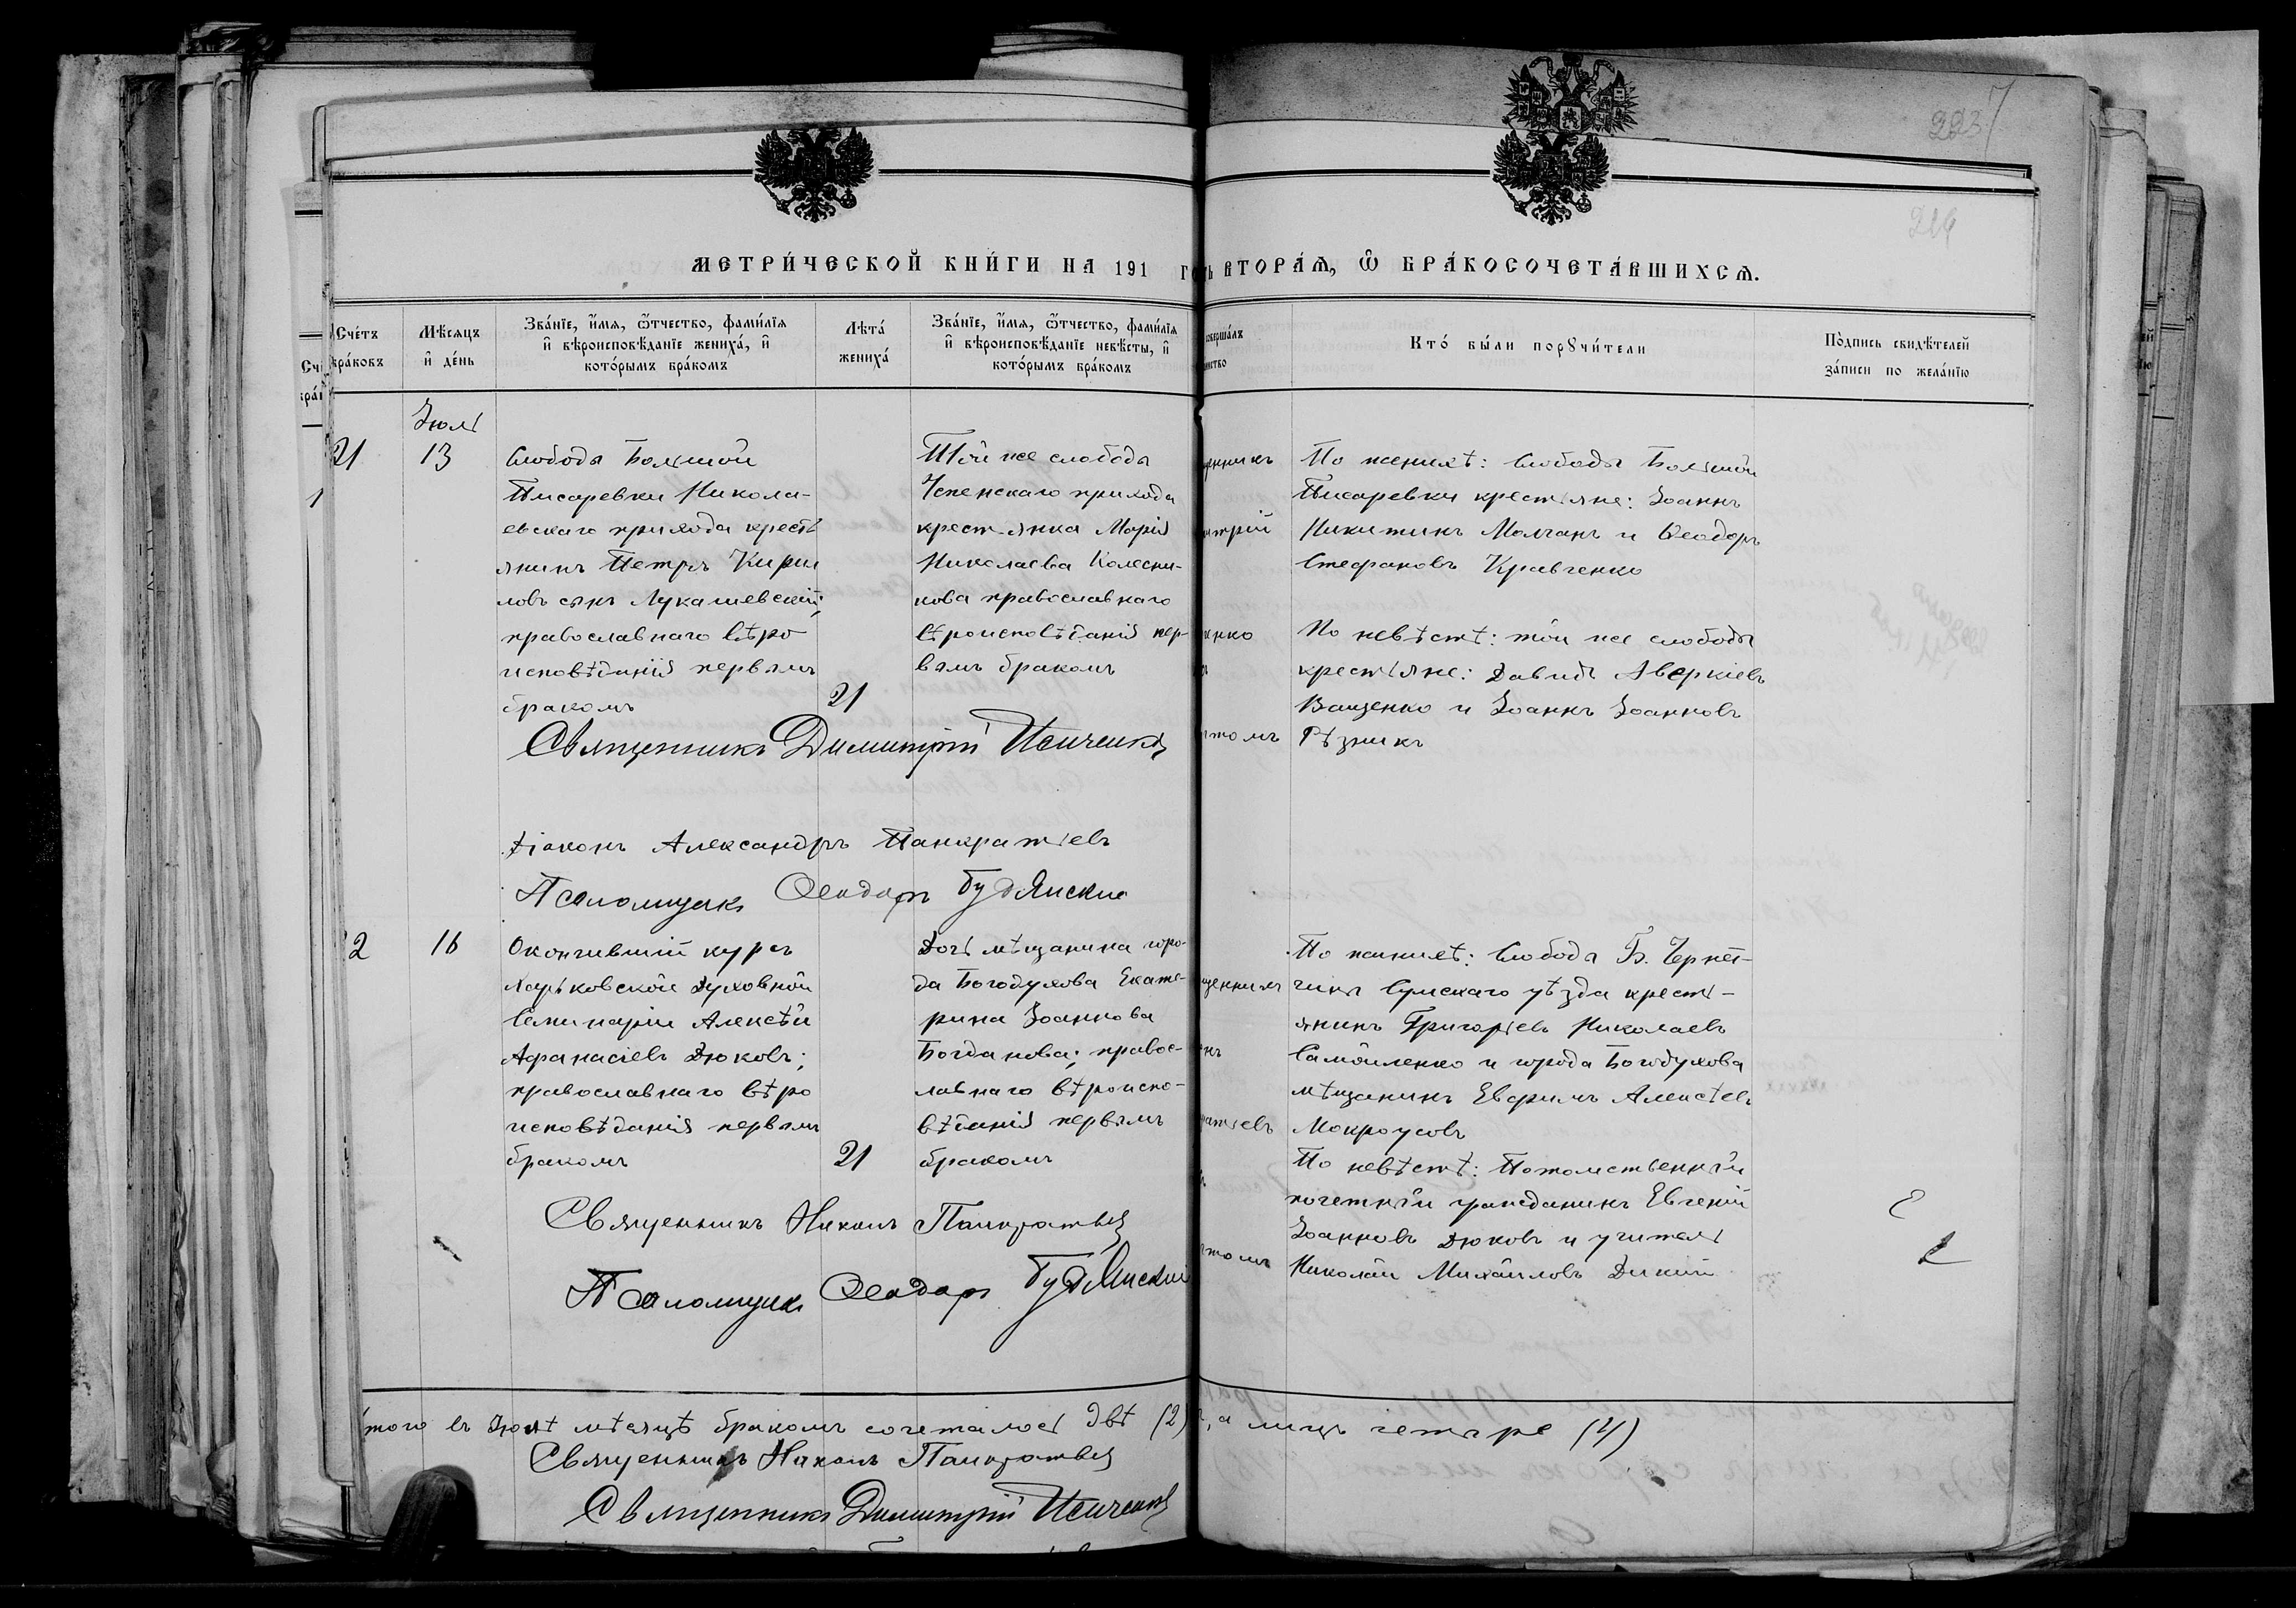 2237
214
МЕТРИ́ЧЕСКОЙ КНИ́ГИ НА 191 ГО ВТОРА́Ѧ, Ѿ БРА́КОСОЧЕТА́ВШИХСѦ.
Сче́тъ бра́ковъ
Мѣ́сяцъ и҆ де́нь
Зва́нїе, и҆́мѧ, ѻ҆́тчество, фами́лїѧ и҆ вѣроисповѣ́данїе жениха́, и҆ кото́рымъ бра́комъ
Лѣта́ жениха́
Зва́нїе, и҆́мѧ, ѻ҆́тчество, фами́лїѧ и҆ вѣроисповѣ́данїе невѣ́сты, и҆ кото́рымъ бра́комъ
соверша́лъ
Кто́ бы́ли порꙋчи́тели
По́дпись свидѣ́телей за́писи по жела́нїю
Іюль
21
13
Слободы Большой
Писаревки Никола-
евскаго прихода кресть
янинъ Петръ Кирил
ловъ сынъ Лукашевскій;
православнаго вѣро
исповѣданія первымъ
бракомъ
21
Той же слободы
Успенскаго прихода
крестьянка Марія
Николаева Колесни-
кова православнаго
вѣроисповѣданія пер-
вымъ бракомъ
По женихѣ: Слободы Большой
Писаревки крестьяне: Іоаннъ
Никитинъ Молчанъ и Ѳеодоръ
Стефановъ Кравченко
По невѣстѣ: той же слободы
крестьяне: Давидъ Аверкіевъ
Ващенко и Іоаннъ Іоанновъ
Рѣзникъ
Священникъ Димитрій
Діаконъ Александръ Панкратьевъ
Псаломщикъ Ѳеодоръ Будянскій
2
16
Окончившій курсъ
Харьковской Духовной
Семинаріи Алексѣй
Афанасіевъ Дюковъ;
православнаго вѣро
исповѣданія первымъ
бракомъ
21
Дочь мѣщанина горо-
да Богодухова Екате-
рина Іоаннова
Богданова; правос-
лавнаго вѣроиспо-
вѣданія первымъ
бракомъ
По женихѣ: Слободы Б. Чернет-
чины Сумскаго уѣзда кресть-
янинъ Григорьевъ Николаевъ
Самойленко и города Богодухова
мѣщанинъ Алексѣевъ
Мокроусовъ
По невѣстѣ: Потомственный
почетный гражданинъ Евгеній
Іоанновъ Дюковъ и учитель
Николай Михайловъ Дикій
Священникъ Никонъ Панкратьевъ
Псаломщикъ Ѳеодоръ Будянскій
того въ Іюлѣ мѣсяцѣ бракомъ сочеталось двѣ (2) , а лицъ четыре (4)
Священникъ Никонъ Панкратьевъ
Священникъ Димитрій